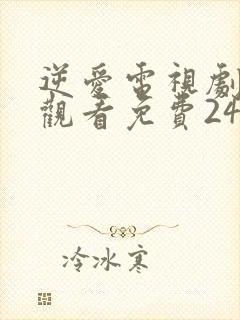 逆愛電視劇
觀看免費24
冷冰寒